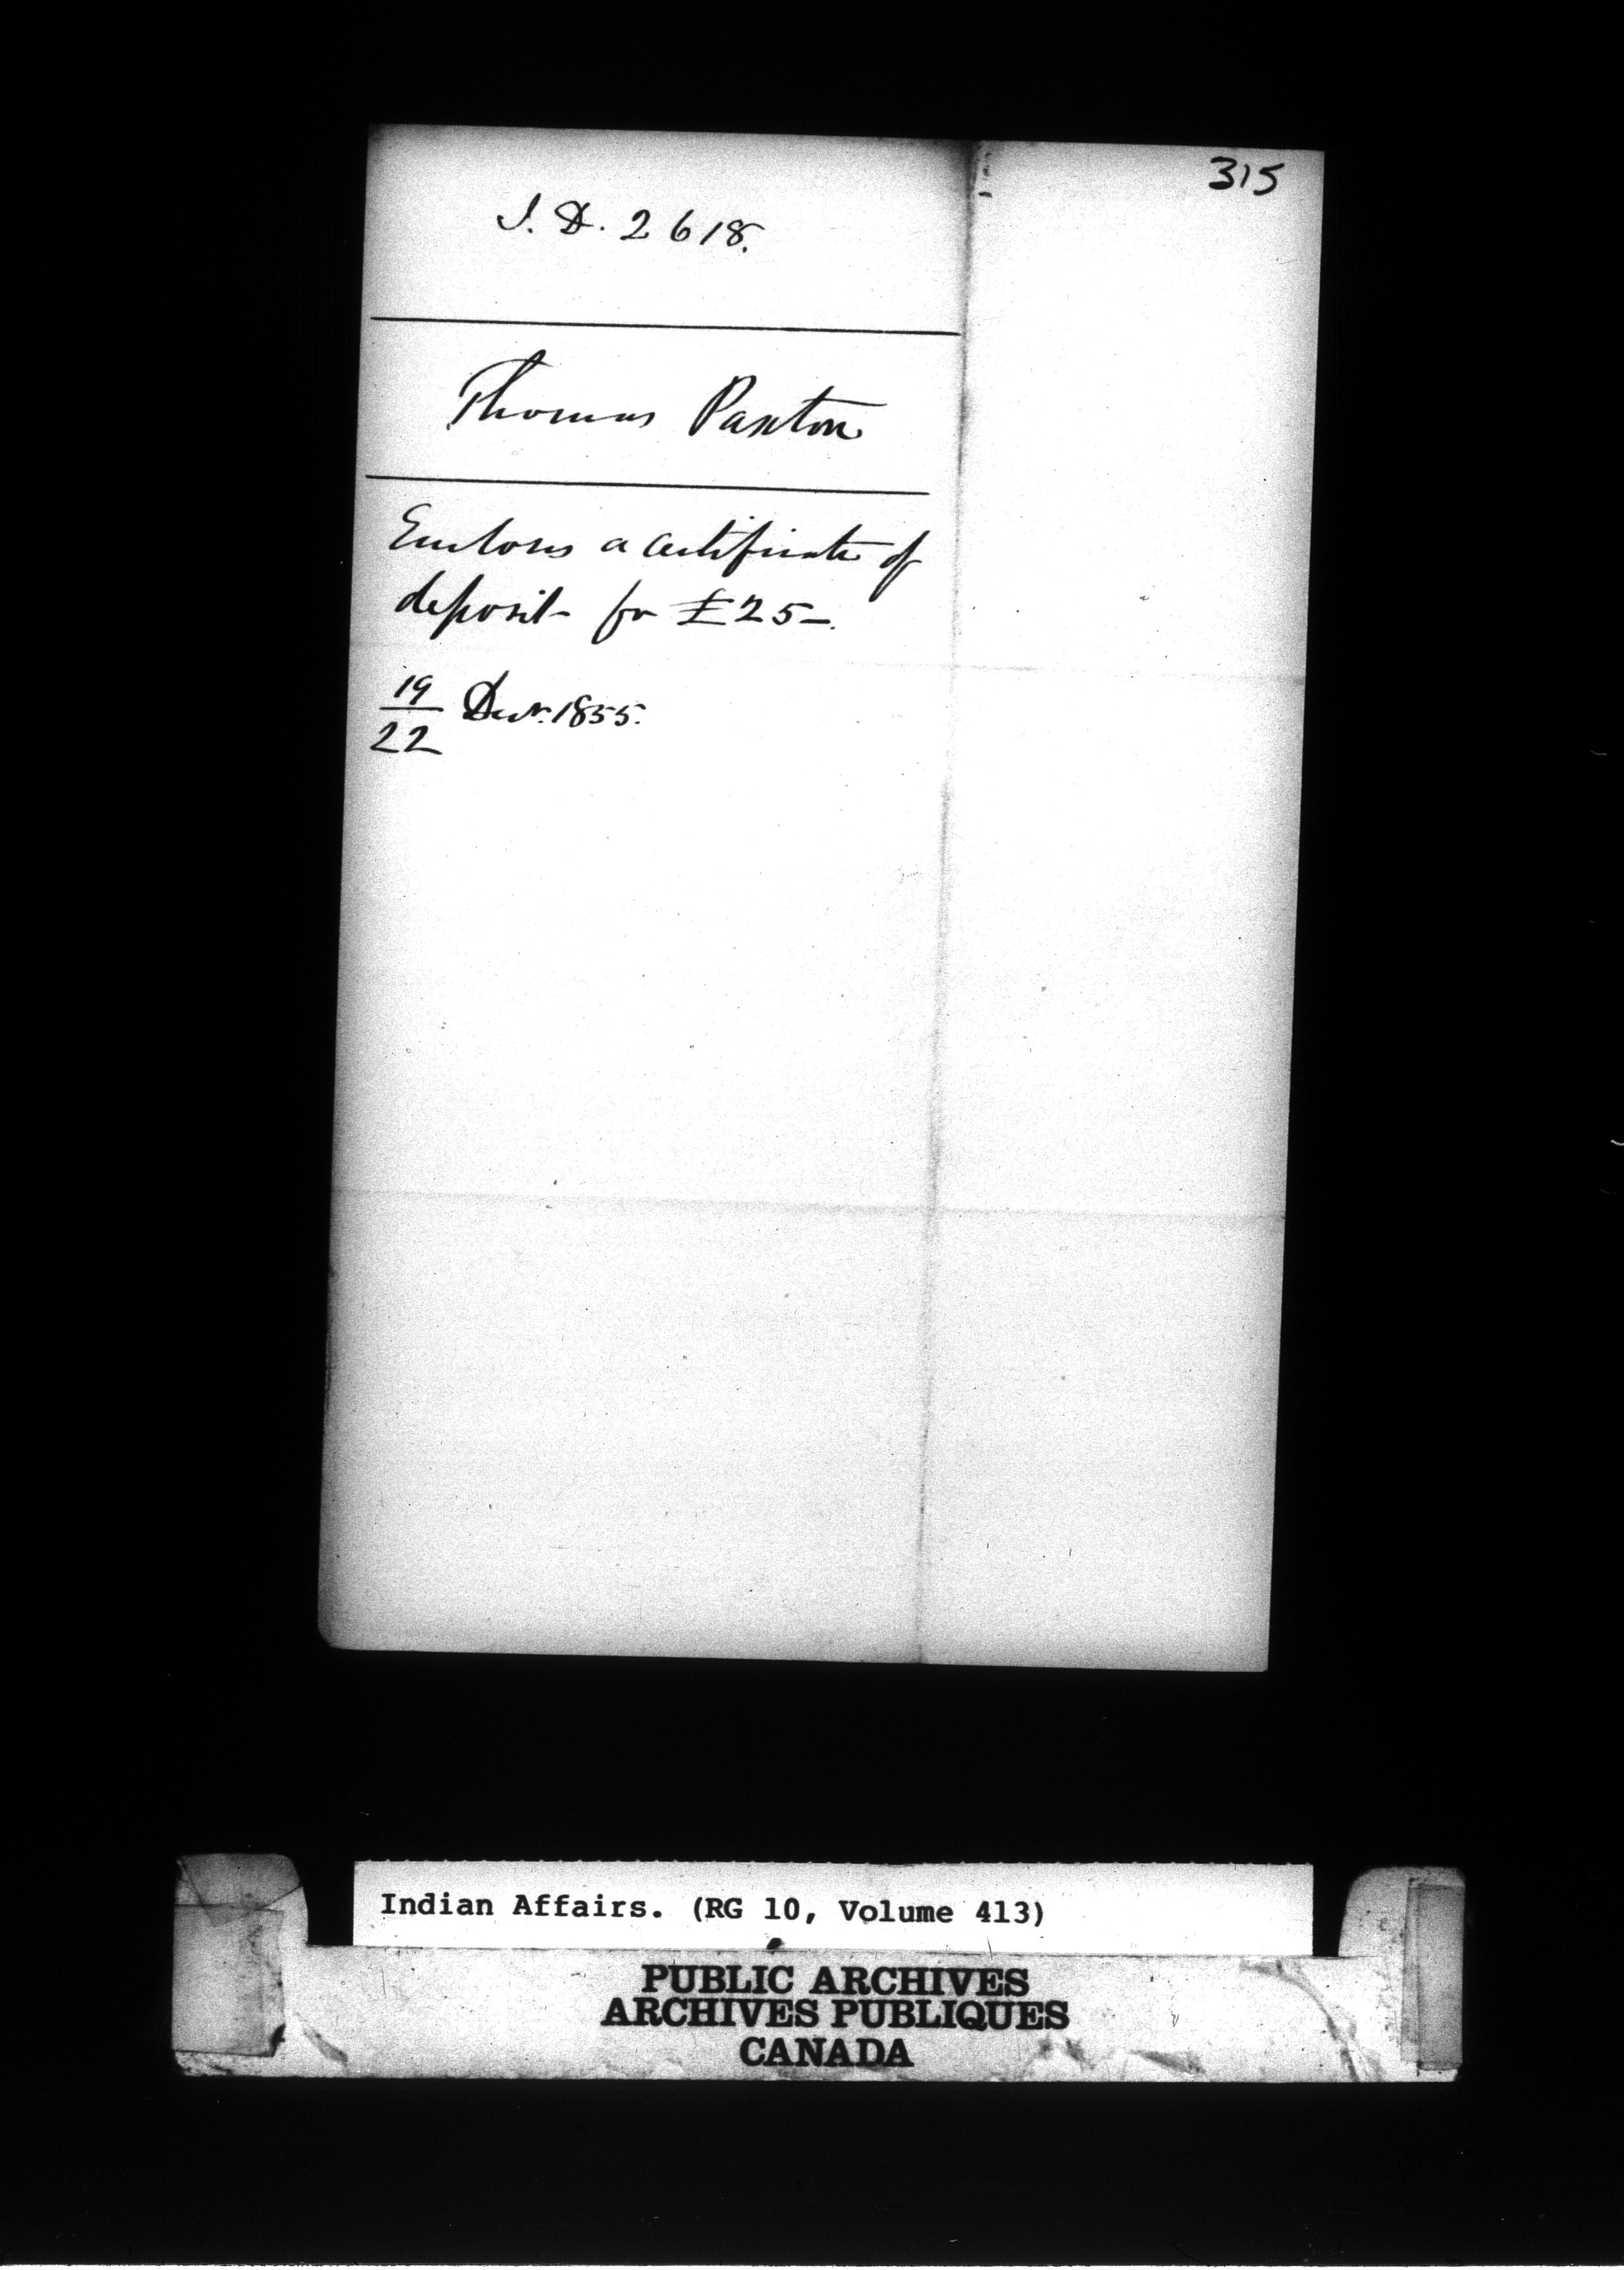 315
I. D. 2618.
Thomas Paxton
Encloses a certificate of
deposit for £25-.
19/22 Decr. 1855.
Indian Affairs. (RG 10, Volume 413)
PUBLIC ARCHIVES
ARCHIVES PUBLIQUES
CANADA